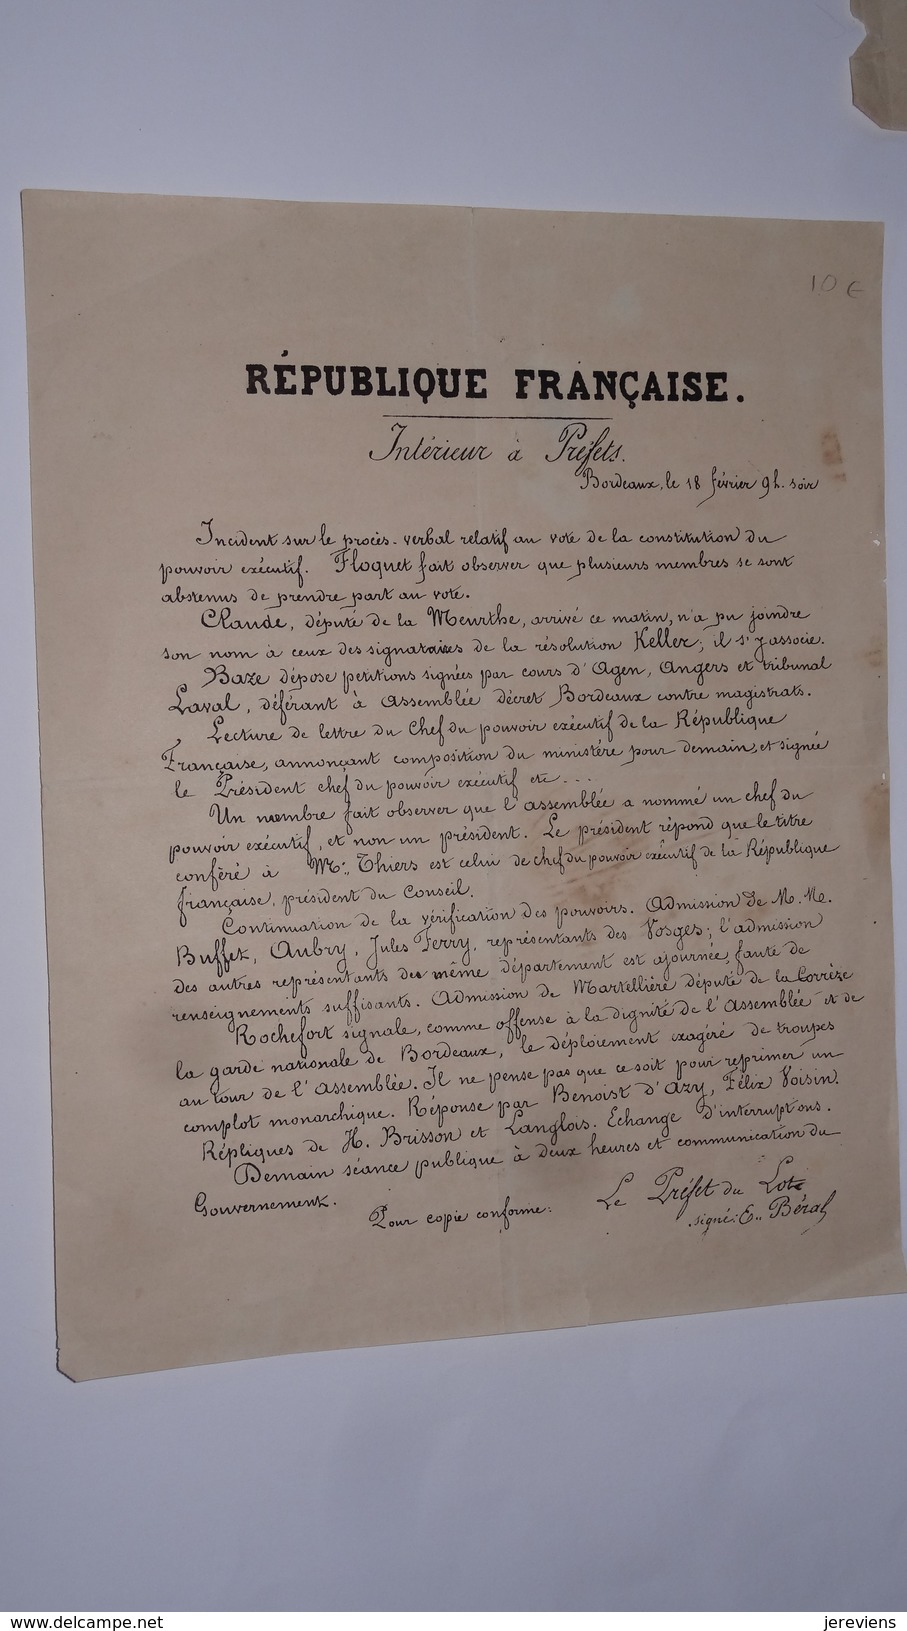 10 €
RÉPUBLIQUE FRANÇAISE.
Intérieur à Préfets.
Bordeaux, le 18 février 9h. soir
Incident sur le procès-verbal relatif au vote de la constitution du
pouvoir exécutif. Floquet fait observer que plusieurs membres se sont
abstenus de prendre part au vote.
Claude, député de la Meurthe, arrivé ce matin, n'a pu joindre
son nom à ceux des signataires de la résolution Keller; il s'y associe.
Baze dépose petitions signées par cours d'Agen, Angers et tribunal
Laval, déférant à Assemblée décret Bordeaux contre magistrats.
Lecture de lettre du Chef du pouvoir exécutif de la République
Française, annonçant composition du ministère pour demain, et signée
le Président chef du pouvoir exécutif etc...
Un membre fait observer que l'assemblée a nommé un chef du
pouvoir exécutif, et non un président. Le président répond que le titre
conféré à Mr. Thiers est celui de chef du pouvoir exécutif de la République
française, président du Conseil.
Continuation de la vérification des pouvoirs. Admission de M.M.
Buffet, Aubry, Jules Ferry, représentants des Vosges; l'admission
des autres représentants du même département est ajournée, faute de
renseignements suffisants. Admission de Martellière député de la Corrèze
Rochefort signale, comme offense à la dignité de l'Assemblée et de
la garde nationale de Bordeaux, le déploiement exagéré de troupes
autour de l'Assemblée. Il ne pense pas que ce soit pour reprimer un
complot monarchique. Réponse par Benoist d'Azy, Félix Voisin.
Répliques de H. Brisson et Langlois. Echange d'interruptions.
Demain séance publique à deux heures et communication du
Gouvernement.
Pour copie conforme: Le Préfet du Lot
signé: E. Béral
delcampe.net
jereviens